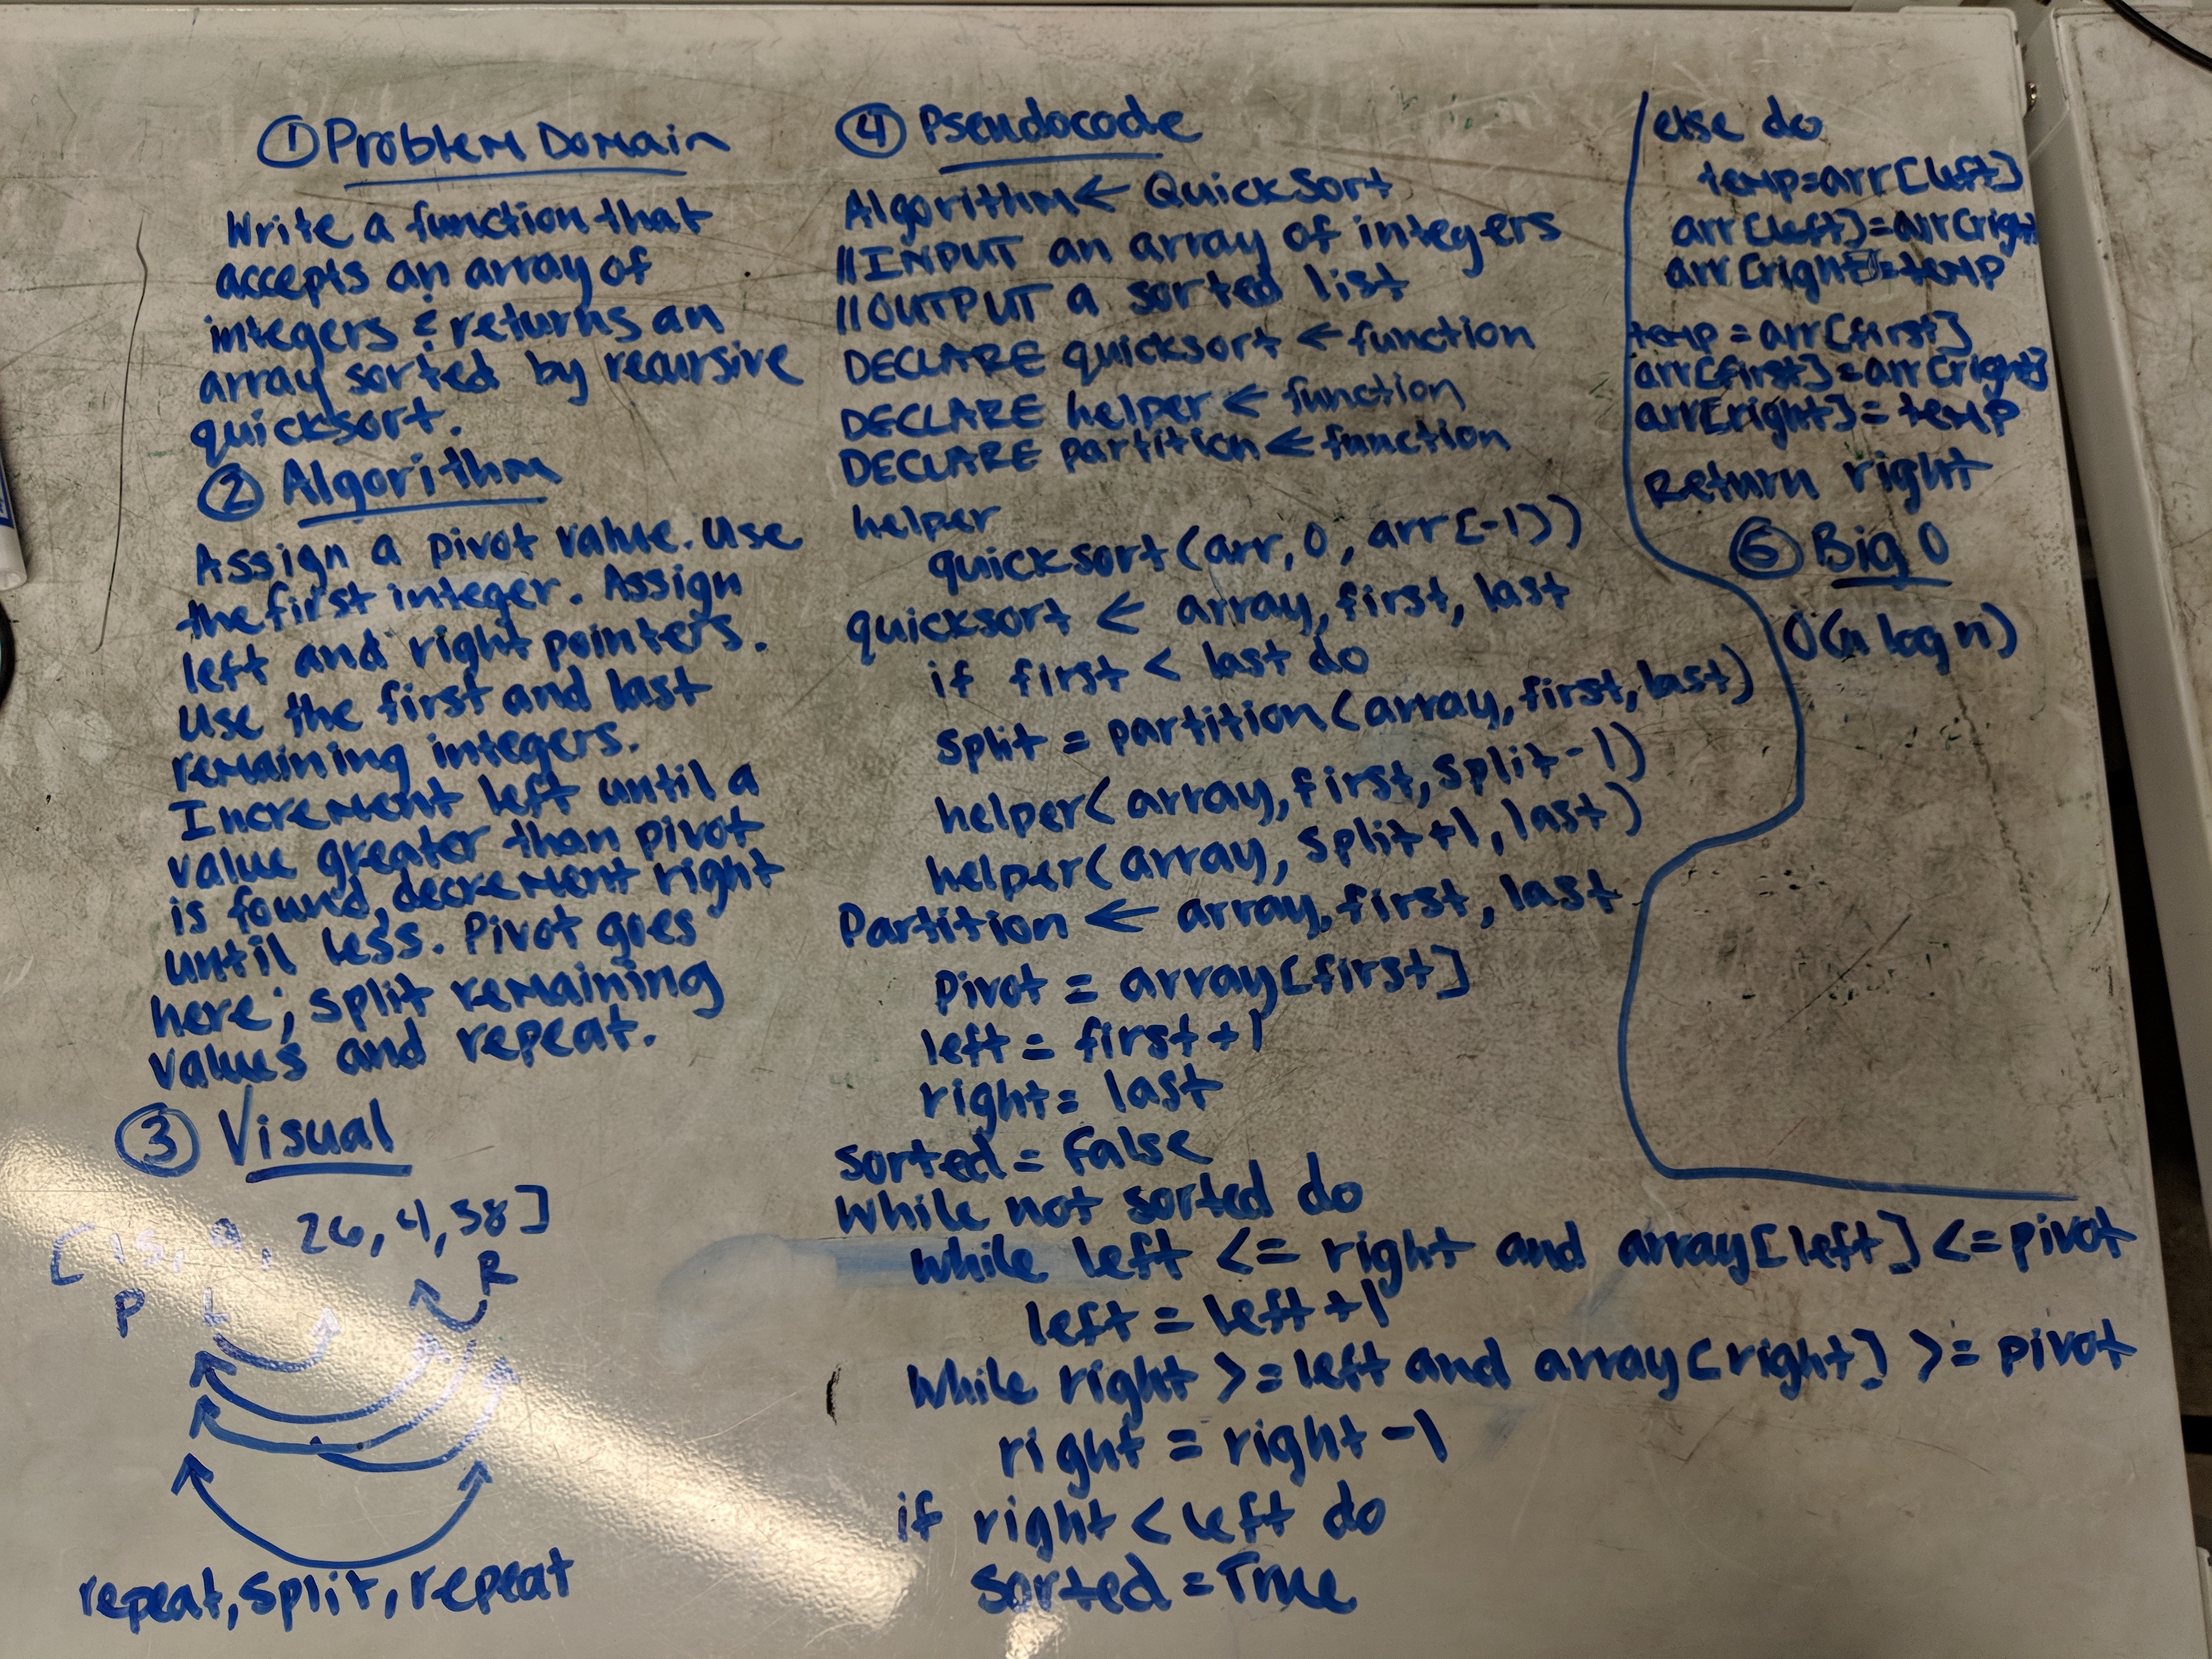 ① Problem Domain
Write a function that
accepts an array of
integers & returns an
array sorted by recursive
quicksort.
② Algorithm
Assign a pivot value. Use
the first integer. Assign
left and right pointers.
Use the first and last
remaining integers.
Increment left until a
value greater than pivot
is found, decrement right
until less. Pivot goes
here; split remaining
values and repeat.
③ Visual
[15, 9, 26, 4, 38]
P L R
repeat, split, repeat
④ Pseudocode
Algorithm ← QuickSort
//INPUT an array of integers
//OUTPUT a sorted list
DECLARE quicksort ← function
DECLARE helper ← function
DECLARE partition ← function
helper
quicksort(arr, 0, arr[-1])
quicksort ← array, first, last
if first < last do
split = partition(array, first, last)
helper(array, first, split-1)
helper(array, split+1, last)
Partition ← array, first, last
Pivot = array[first]
left = first+1
right = last
sorted = False
While not sorted do
while left <= right and array[left] <= pivot
left = left+1
while right >= left and array[right] >= pivot
right = right-1
if right < left do
sorted = True
else do
temp=arr[left]
arr[left]=arr[righ
arr[right]=temp
temp = arr[first]
arr[first]=arr[right]
arr[right]=temp
Return right
⑤ Big O
O(n log n)